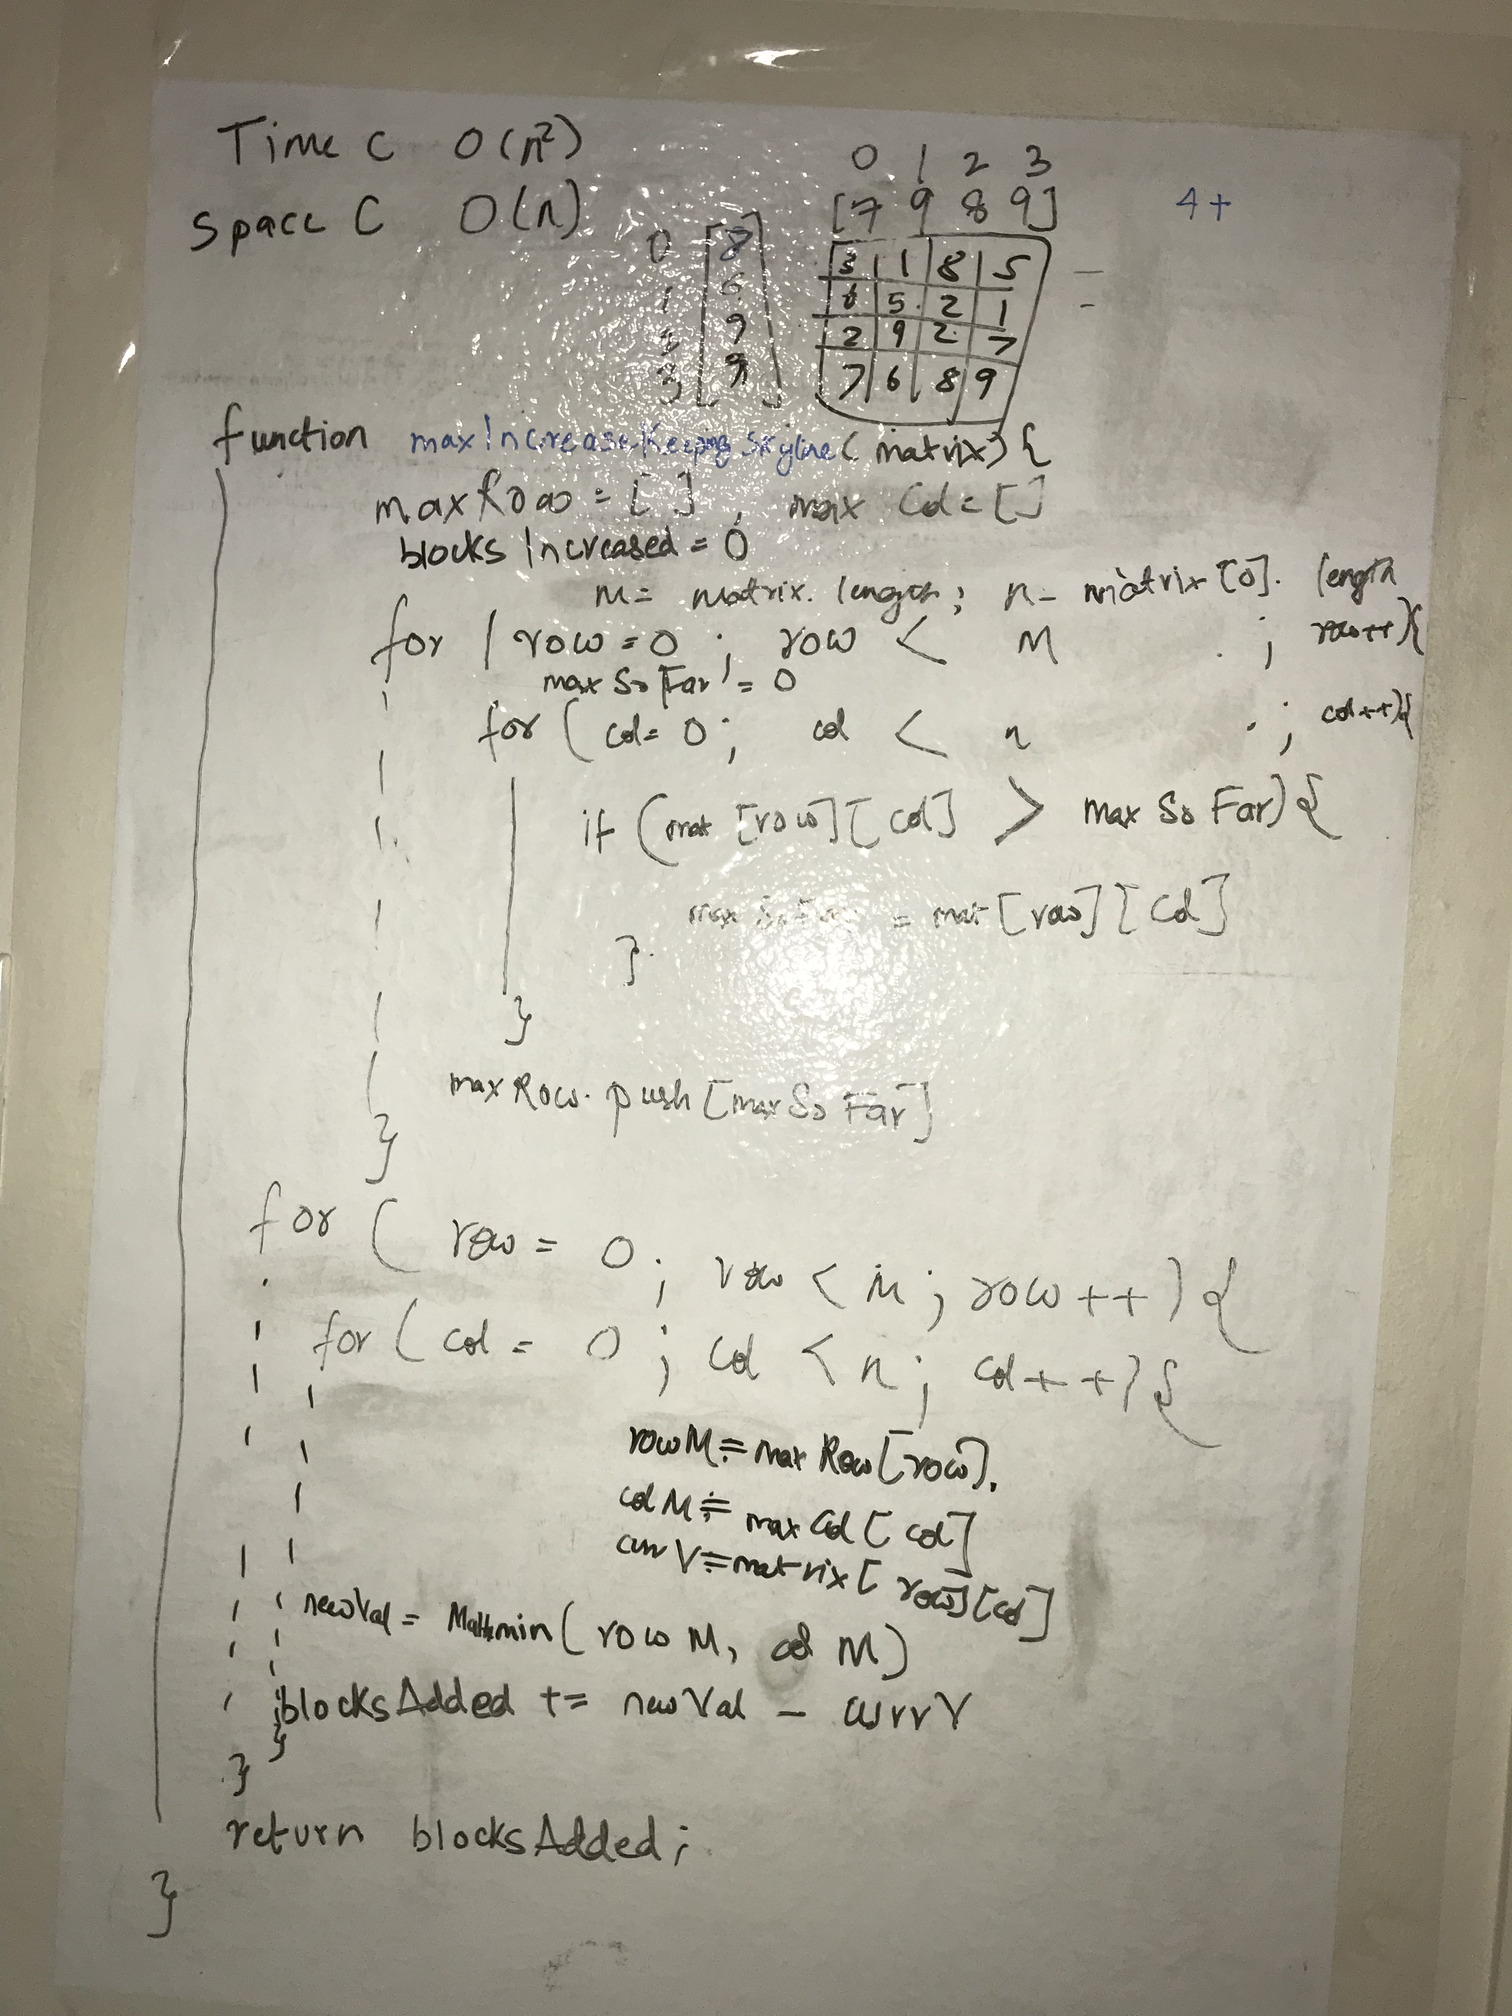 Time C O(n²)
Space C O(n)
0 1 2 3
[7 9 8 9]
4+
0 [8 3 1 8 5
1 6 6 5 2 1
2 9 2 9 2 7
3 9] 7 6 8 9
function maxIncreaseKeepingSkyline(matrix){
maxRow = [ ], maxCol = []
blocks Increased = 0
m = matrix.length; n = matrix[0].length
for (row = 0; row < m; row++){
maxSoFar = 0
for (col = 0; col < n; col++){
if (mat [row][col] > maxSoFar){
maxSoFar = mat[row][col]
}
}
maxRow.push[maxSoFar]
}
for ( row = 0; row < m; row++){
for ( col = 0; col < n; col++){
rowM = maxRow[row].
colM = maxCol[col]
curr V = matrix[row][col]
newVal = Math.min(rowM, colM)
blocksAdded += newVal - currV
}
}
return blocksAdded;
}